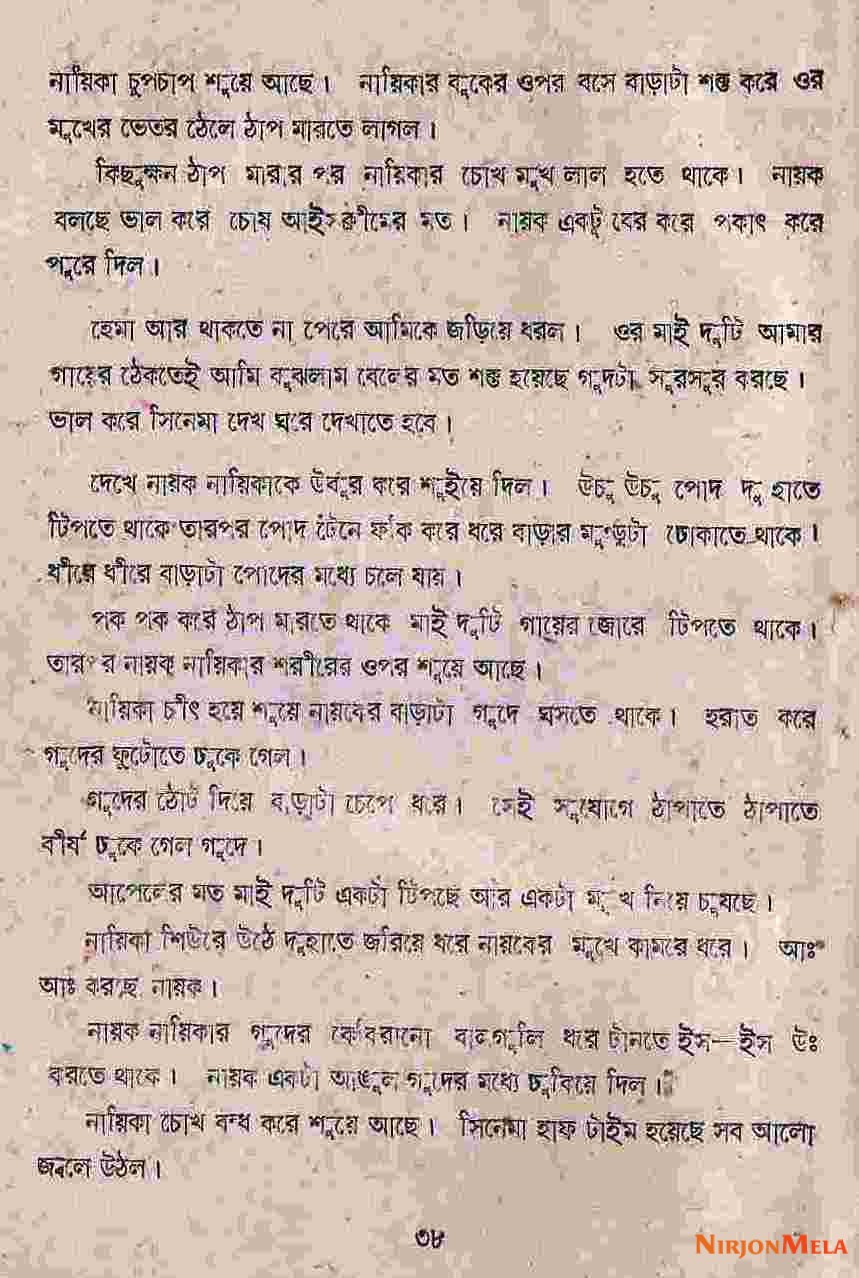 নায়িকা চুপচাপ শুয়ে আছে। নায়িকার বুকের ওপর বসে বাড়াটা শক্ত করে ওর
মুখের ভেতর ঠেলে ঠাপ মারতে লাগল।
কিছুক্ষন ঠাপ মারার পর নায়িকার চোখ মুখ লাল হতে থাকে। নায়ক
বলছে ভাল করে চোষ আইসক্রীমের মত। নায়ক একটু বের করে পকাৎ করে
পুরে দিল।
হেমা আর থাকতে না পেরে আমিকে জড়িয়ে ধরল। ওর মাই দুটি আমার
গায়ের ঠেকতেই আমি বুঝলাম বেলের মত শক্ত হয়েছে গুদটা সুরসুর করছে।
ভাল করে সিনেমা দেখ ঘরে দেখাতে হবে।
দেখে নায়ক নায়িকাকে উবুর করে শুইয়ে দিল। উচু উচু পোদ দু হাতে
টিপতে থাকে তারপর পোদ টেনে ফাঁক করে ধরে বাড়ার মুণ্ডুটা ঢোকাতে থাকে।
ধীরে ধীরে বাড়াটা পোদের মধ্যে চলে যায়।
পক পক করে ঠাপ মারতে থাকে মাই দুটি গায়ের জোরে টিপতে থাকে।
তারপর নায়ক নায়িকার শরীরের ওপর শুয়ে আছে।
নায়িকা চীৎ হয়ে শুয়ে নায়কের বাড়াটা গুদে ঘসতে থাকে। হরাত করে
গুদের ফুটোতে ঢুকে গেল।
গুদের ঠোট দিয়ে বাড়াটা চেপে ধরে। সেই সুযোগে ঠাপাতে ঠাপাতে
বীর্য ঢুকে গেল গুদে।
আপেলের মত মাই দুটি একটা টিপছে আর একটা মুখ নিয়ে চুষছে।
নায়িকা শিউরে উঠে দুহাতে জরিয়ে ধরে নায়কের মুখে কামরে ধরে। আঃ
আঃ করছে নায়ক।
নায়ক নায়িকার গুদের কোঁবরানো বালগুলি ধরে টানতে ইস—ইস উঃ
করতে থাকে। নায়ক একটা আঙুল গুদের মধ্যে ঢুকিয়ে দিল।
নায়িকা চোখ বন্ধ করে শুয়ে আছে। সিনেমা হাফ টাইম হয়েছে সব আলো
জ্বলে উঠল।
৩৮
NIRJONMELA